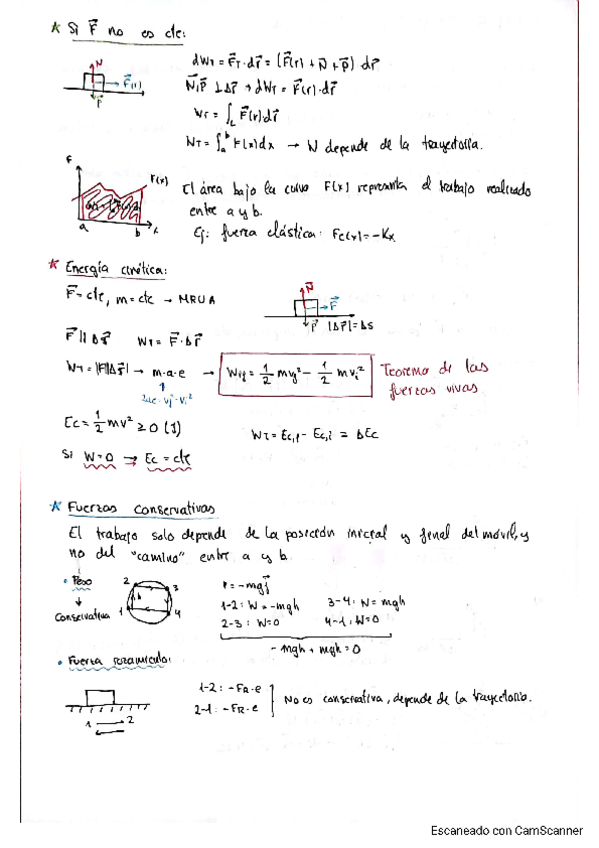 * Si F⃗ no es cte:
N
F⃗(r)
P
dWT = F⃗T·dr⃗ = (F⃗(r) + N⃗ + P⃗) dr⃗
N⃗,P⃗ ⊥ Δr⃗ → dWT = F⃗(r)·dr⃗
WT = ∫L F⃗(r)dr⃗
WT = ∫ₐᵇ F(x)dx → W depende de la trayectoria.
F
F(x)
a b x
El área bajo la curva F(x) representa el trabajo realizado
entre a y b.
Ej: fuerza elástica: Fe(x) = -Kx
* Energía cinética:
F⃗ = cte, m = cte → MRUA
N⃗
F⃗
P⃗ |Δr⃗| = Δs
F⃗ || Δr⃗ WT = F⃗·Δr⃗
WT = |F||Δr⃗| → m·a·e → Wif = 1/2 mvf² - 1/2 mvi² Teorema de las
fuerzas vivas
2ae = vf² - vi²
Ec = 1/2 mv² ≥ 0 (J)
WT = Ec,f - Ec,i = ΔEc
Si W=0 → Ec = cte
* Fuerzas conservativas
El trabajo solo depende de la posición inicial y final del móvil, y
no del "camino" entre a y b.
• Peso
↓
Conservativa
2 3
h
1 4
P = -mgj⃗
1-2: W = -mgh 3-4: W = mgh
2-3: W=0 4-1: W=0
-mgh + mgh = 0
• Fuerza rozamiento:
1 2
1-2: -FR·e
2-1: -FR·e
No es conservativa, depende de la trayectoria.
Escaneado con CamScanner